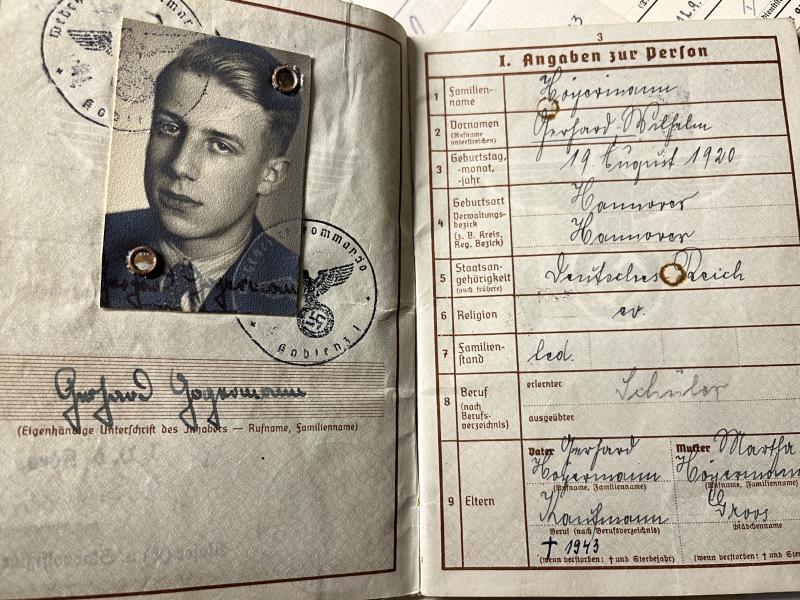 Wehrbezirkskommando
Koblenz 1
Gerhard Hoyermann
(Eigenhändige Unterschrift des Inhabers — Rufname, Familienname)
3
I. Angaben zur Person
1 Familien-
name
Hoyermann
2 Vornamen
(Rufname
unterstreichen)
Gerhard Wilhelm
3 Geburtstag,
-monat,
-jahr
19 August 1920
4 Geburtsort
Verwaltungs-
bezirk
(z. B. Kreis,
Reg. Bezirk)
Hannover
Hannover
5 Staatsan-
gehörigkeit
(auch frühere)
Deutsches Reich
6 Religion
ev.
7 Familien-
stand
led.
8 Beruf
(nach
Berufs-
verzeichnis)
erlernter
Schüler
ausgeübter
9 Eltern
Vater Gerhard
Hoyermann
(Rufname, Familienname)
Kaufmann
Beruf (nach Berufsverzeichnis)
† 1943
(wenn verstorben: † und Sterbejahr)
Mutter Martha
Hoyermann
(Rufname, Familienname)
Groos
Mädchenname
(wenn verstorben: † und Ster